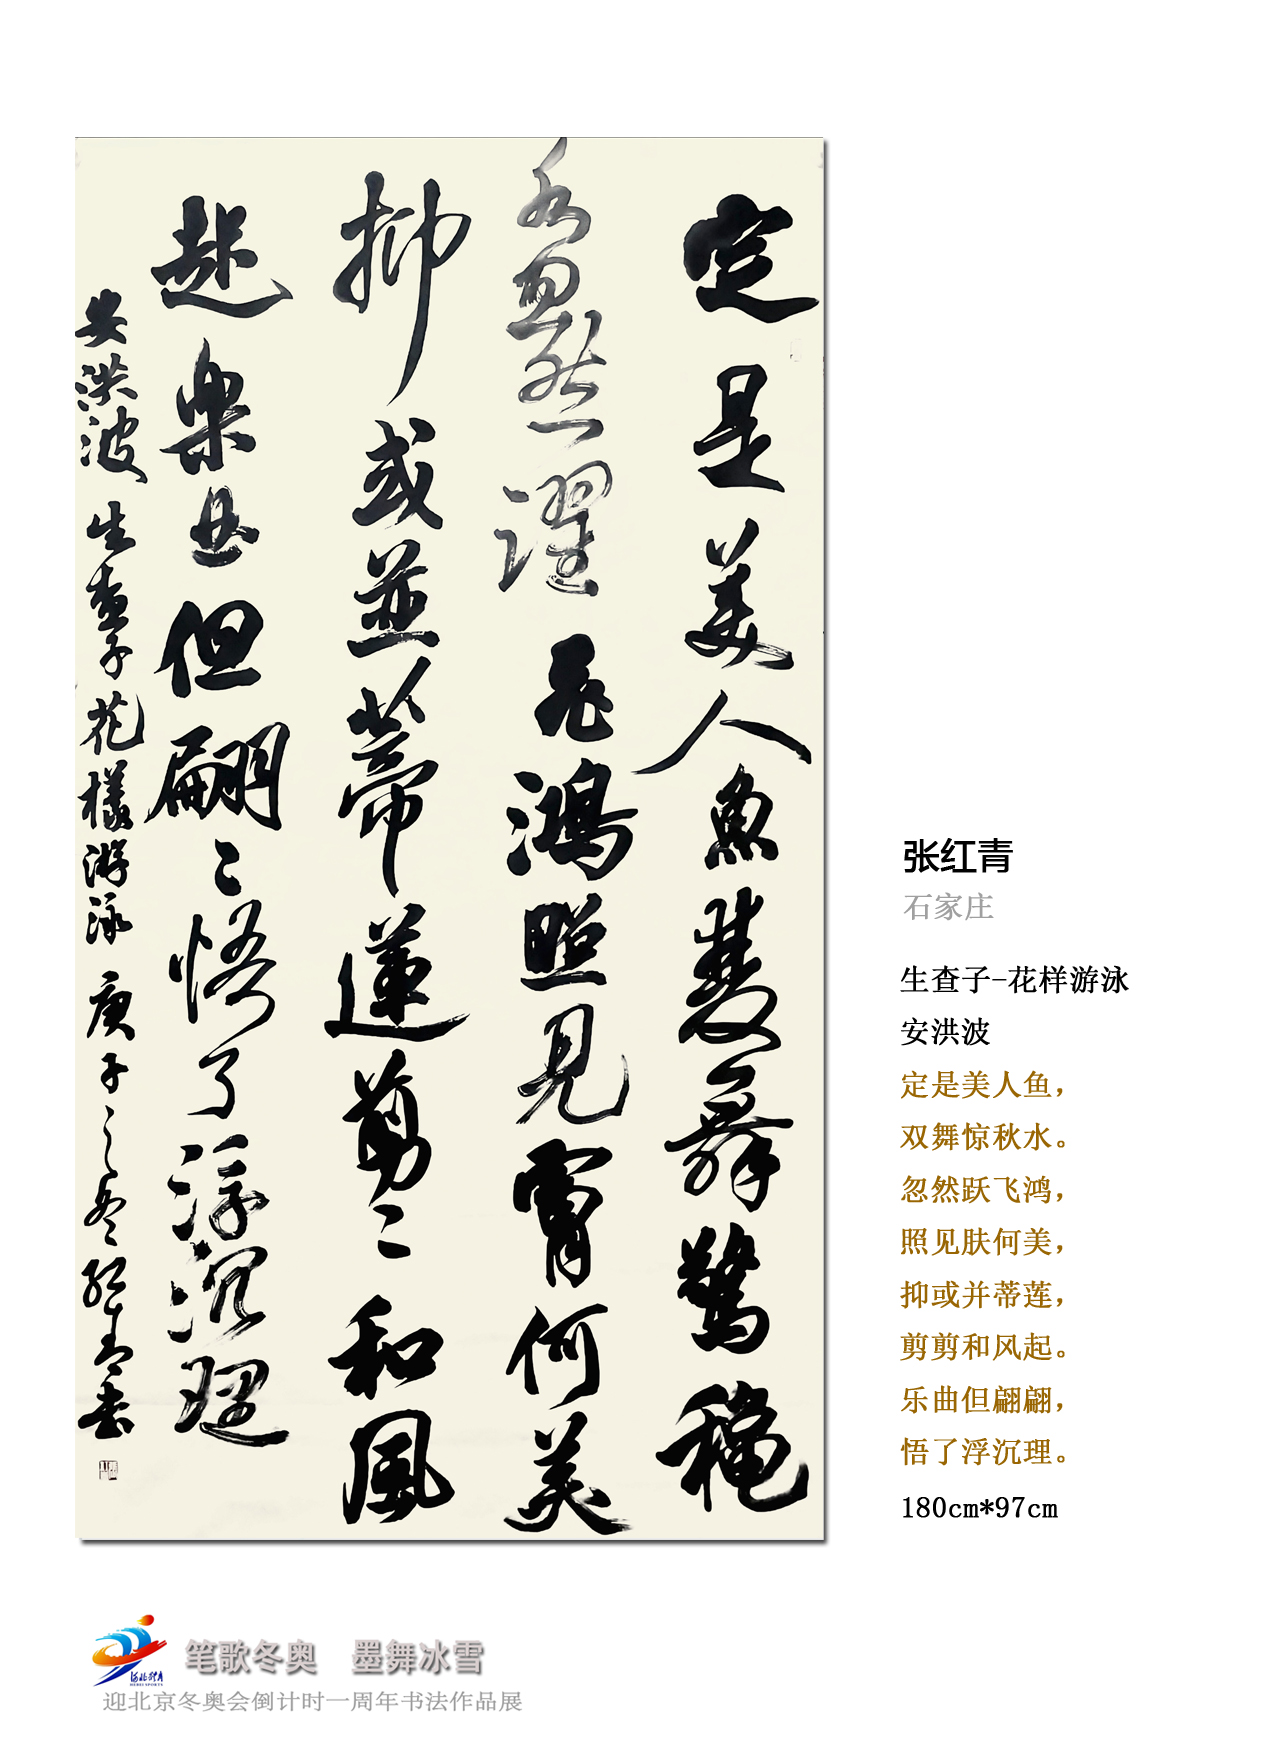 定是美人魚雙舞驚穐
水忽然一躍飛鴻照見膚何美
抑或並蒂蓮剪〻和風
起樂曲但翩〻悟了浮沉理
安洪波生查子花樣游泳庚子之冬紅青书
张红青
石家庄
生查子-花样游泳
安洪波
定是美人鱼，
双舞惊秋水。
忽然跃飞鸿，
照见肤何美，
抑或并蒂莲，
剪剪和风起。
乐曲但翩翩，
悟了浮沉理。
180cm*97cm
河北体育
HEBEI SPORTS
笔歌冬奥 墨舞冰雪
迎北京冬奥会倒计时一周年书法作品展